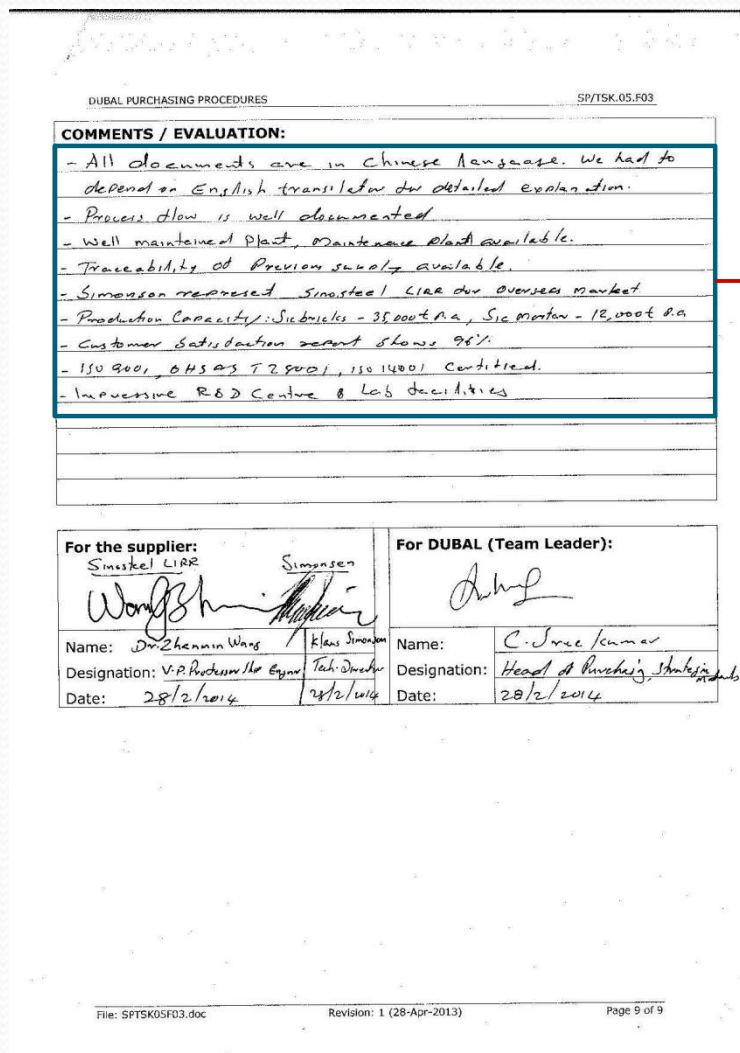 DUBAL PURCHASING PROCEDURES SP/TSK.05.F03
COMMENTS / EVALUATION:
- All documents are in Chinese language. We had to
depend on English translator for detailed explanation.
- Process flow is well documented
- Well maintained Plant, Maintenance plant available.
- Traceability of Previous supply available.
- Simonson represent Sinosteel LIRR for Overseas market
- Production Capacity: Sicbricks - 35,000t P.a, Sic mortar - 12,000t P.a
- Customer Satisfaction report shows 96%
- ISO 9001, OHSAS T 28001, ISO 14001 Certified.
- Impressive R&D Centre & Lab facilities
For the supplier: For DUBAL (Team Leader):
Sinosteel LIRR Simonsen
Name: Dr. Zhanmin Wang Klaus Simonson Name: C. Sree Kumar
Designation: V.P. Professor Engnr Tech. Director Designation: Head of Purchasing, Strategic
Date: 28/2/2014 28/2/2014 Date: 28/2/2014
File: SPTSK05F03.doc Revision: 1 (28-Apr-2013) Page 9 of 9